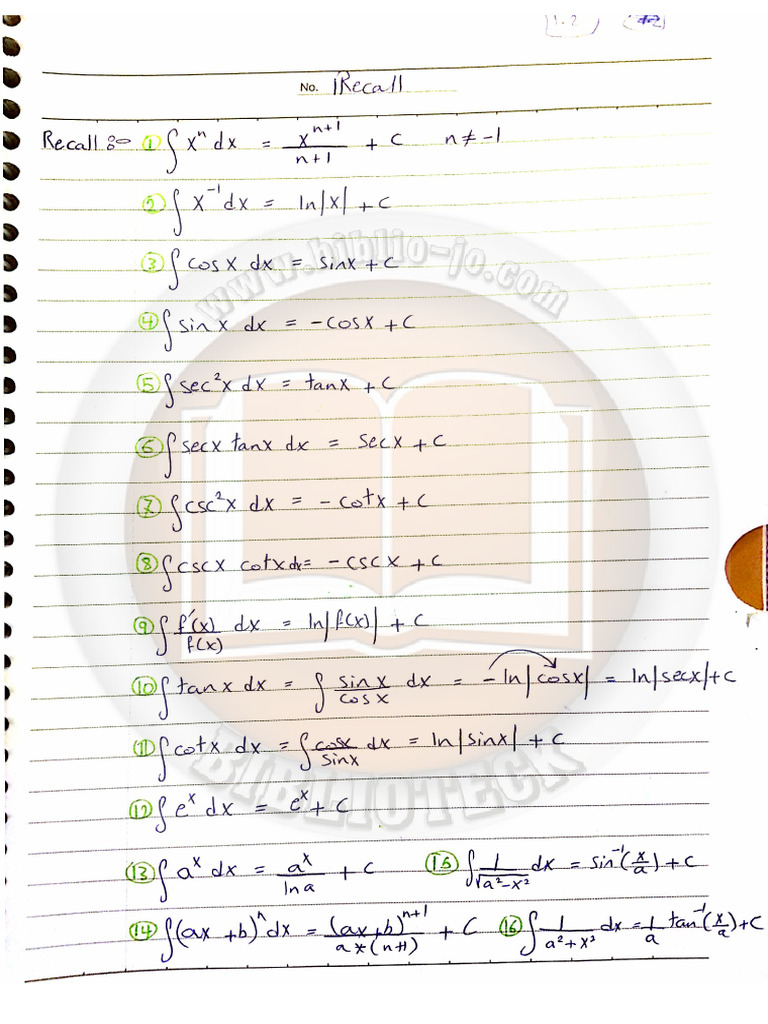 1.2
No. 1Recall
Recall :- ① ∫ xⁿ dx = xⁿ⁺¹/(n+1) + C n ≠ -1
② ∫ x⁻¹ dx = ln|x| + C
③ ∫ cos x dx = sinx + C
④ ∫ sin x dx = -cosx + C
⑤ ∫ sec²x dx = tanx + C
⑥ ∫ secx tanx dx = secx + C
⑦ ∫ csc²x dx = -cotx + C
⑧ ∫ cscx cotx dx = -cscx + C
⑨ ∫ f'(x)/f(x) dx = ln|f(x)| + C
⑩ ∫ tanx dx = ∫ sinx/cosx dx = -ln|cosx| = ln|secx| + C
⑪ ∫ cotx dx = ∫ cosx/sinx dx = ln|sinx| + C
⑫ ∫ eˣ dx = eˣ + C
⑬ ∫ aˣ dx = aˣ/ln a + C ⑮ ∫ 1/√(a²-x²) dx = sin⁻¹(x/a) + C
⑭ ∫ (ax+b)ⁿ dx = (ax+b)ⁿ⁺¹/(a*(n+1)) + C ⑯ ∫ 1/(a²+x²) dx = 1/a tan⁻¹(x/a) + C
www.biblio-jo.com
BIBLIOTECK